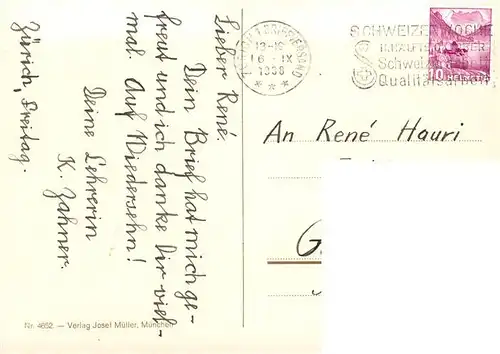 Lieber René.
Dein Brief hat mich ge-
freut und ich danke Dir viel-
mal. Auf Wiedersehn!
Deine Lehrerin
K. Zahner.
Zürich, Freitag.
Nr. 4652. — Verlag Josef Müller, München
BRIEFVERSAND
1938
SCHWEIZER WOCHE
Schweizer
Qualitätsarbeit
10
HELVETIA
An René Hauri
G